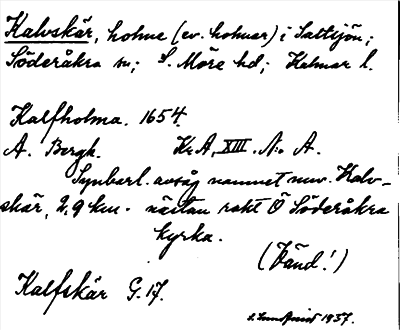 Kalvskär, holme (ev. holmar) i Saltsjön;
Söderåkra sn; S. Möre hd; Kalmar l.
Kalfholma. 1654.
A. Bergh. KrA, XIII. No A.
Synbarl. avsåg namnet nuv. Kalv-
skär, 2,9 km. nästan rakt Ö Söderåkra
kyrka.
(Vänd!)
Kalfskär G. 17.
1937.